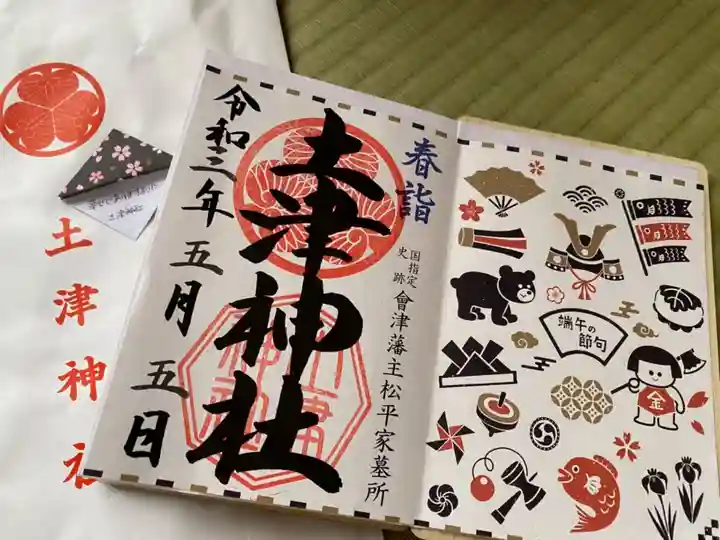 土津神社
幸せであります様に
土津神社
春詣
国指定
史跡
會津藩主松平家墓所
土津神社
令和二年五月五日
端午の
節句
金